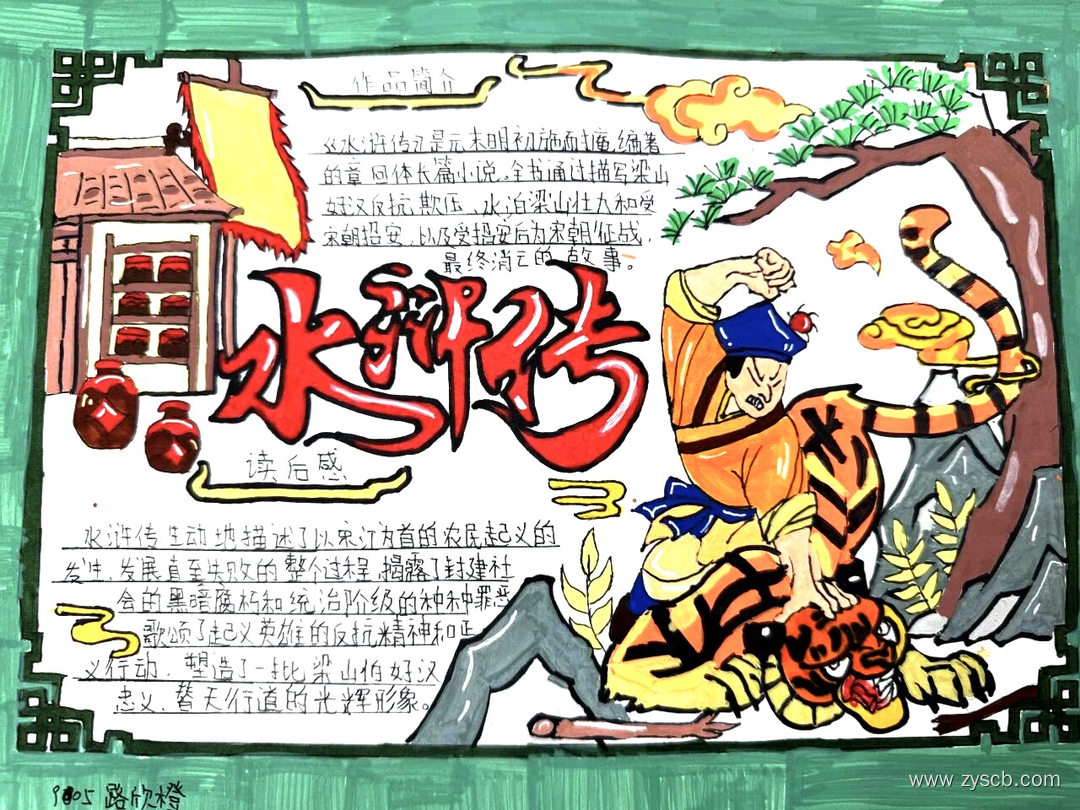 作品简介
《水浒传》是元末明初施耐庵编著
的章回体长篇小说。全书通过描写梁山
好汉反抗欺压、水泊梁山壮大和受
宋朝招安,以及受招安后为宋朝征战,
最终消亡的故事。
水浒传
读后感
水浒传生动地描述了以宋江为首的农民起义的
发生、发展直至失败的整个过程,揭露了封建社
会的黑暗腐朽和统治阶级的种种罪恶
歌颂了起义英雄的反抗精神和正
义行动,塑造了一批梁山伯好汉
忠义、替天行道的光辉形象。
9005 路欣橙
www.zyscb.com